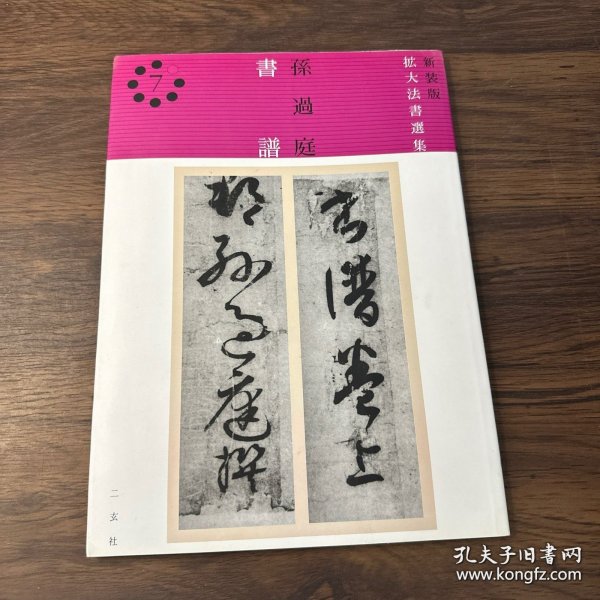 新装版
拡大法書選集
7
孫過庭
書譜
書譜卷上
郡孫過庭撰
二玄社
孔夫子旧书网
www.kongfz.com